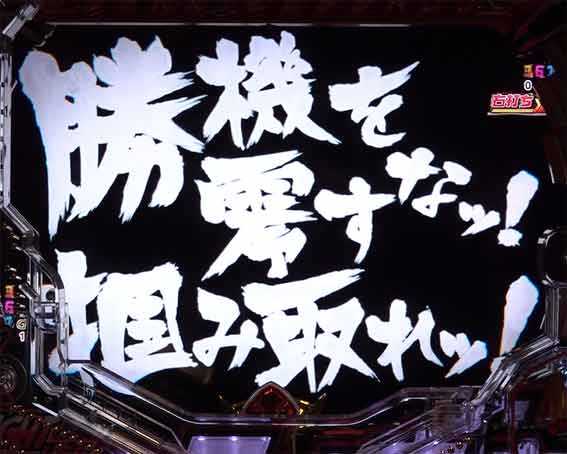 勝機を
零すなッ!
掴み取れッ!
右打ち
0